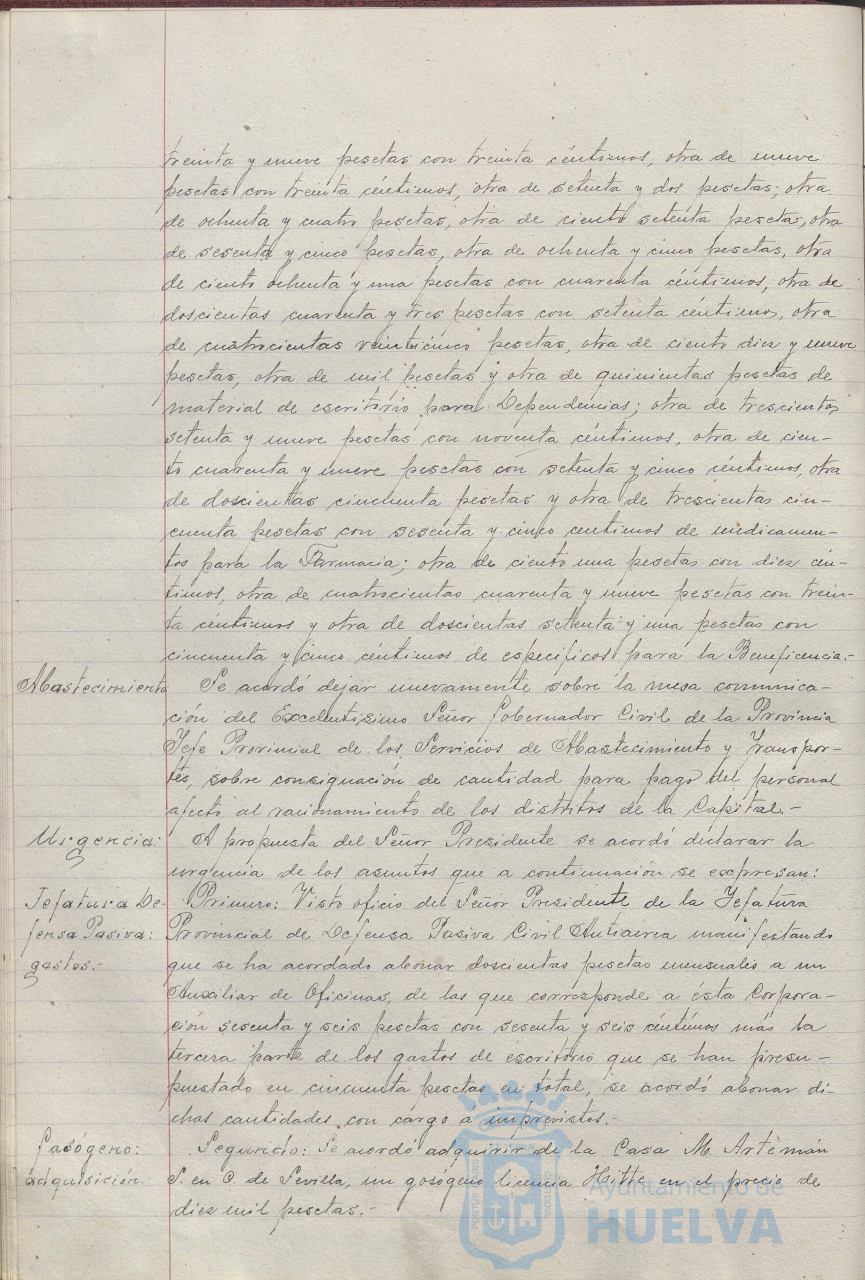 treinta y nueve pesetas con treinta céntimos, otra de nueve
pesetas con treinta céntimos, otra de setenta y dos pesetas, otra
de ochenta y cuatro pesetas, otra de ciento setenta pesetas, otra
de sesenta y cinco pesetas, otra de ochenta y cinco pesetas, otra
de ciento ochenta y una pesetas con cuarenta céntimos, otra de
doscientas cuarenta y tres pesetas con setenta céntimos, otra
de cuatrocientas veinticinco pesetas, otra de ciento diez y nueve
pesetas, otra de mil pesetas y otra de quinientas pesetas de
material de escritorio para Dependencias; otra de trescientas
setenta y nueve pesetas con noventa céntimos, otra de cien-
to cuarenta y nueve pesetas con setenta y cinco céntimos, otra
de doscientas cincuenta pesetas y otra de trescientas cin-
cuenta pesetas con sesenta y cinco centimos de medicamen-
tos para la Farmacia; otra de ciento una pesetas con diez cén-
timos, otra de cuatrocientas cuarenta y nueve pesetas con trein-
ta céntimos y otra de doscientas setenta y una pesetas con
cincuenta y cinco céntimos de específicos para la Beneficencia.-
Abastecimiento Se acordó dejar nuevamente sobre la mesa comunica-
ción del Excelentísimo Señor Gobernador Civil de la Provincia
Jefe Provincial de los Servicios de Abastecimiento y Transpor-
tes, sobre consignación de cantidad para pago del personal
afecto al racionamiento de los distritos de la Capital.-
Urgencia: A propuesta del Señor Presidente se acordó declarar la
urgencia de los asuntos que a continuación se expresan:
Jefatura De- Primero: Visto oficio del Señor Presidente de la Jefatura
fensa Pasiva: Provincial de Defensa Pasiva Civil Antiaerea manifestando
gastos.- que se ha acordado abonar doscientas pesetas mensuales a un
Auxiliar de Oficinas, de las que corresponde a ésta Corpora-
ción sesenta y seis pesetas con sesenta y seis céntimos más la
tercera parte de los gastos de escritorio que se han presu-
puestado en cincuenta pesetas en total, se acordó abonar di-
chas cantidades con cargo a imprevistos.-
Gasógeno: Segundo: Se acordó adquirir de la Casa M. Artemán
adquisición. S. en C. de Sevilla, un gosógeno licencia Hitte en el precio de
diez mil pesetas.-
Ayuntamiento de
HUELVA